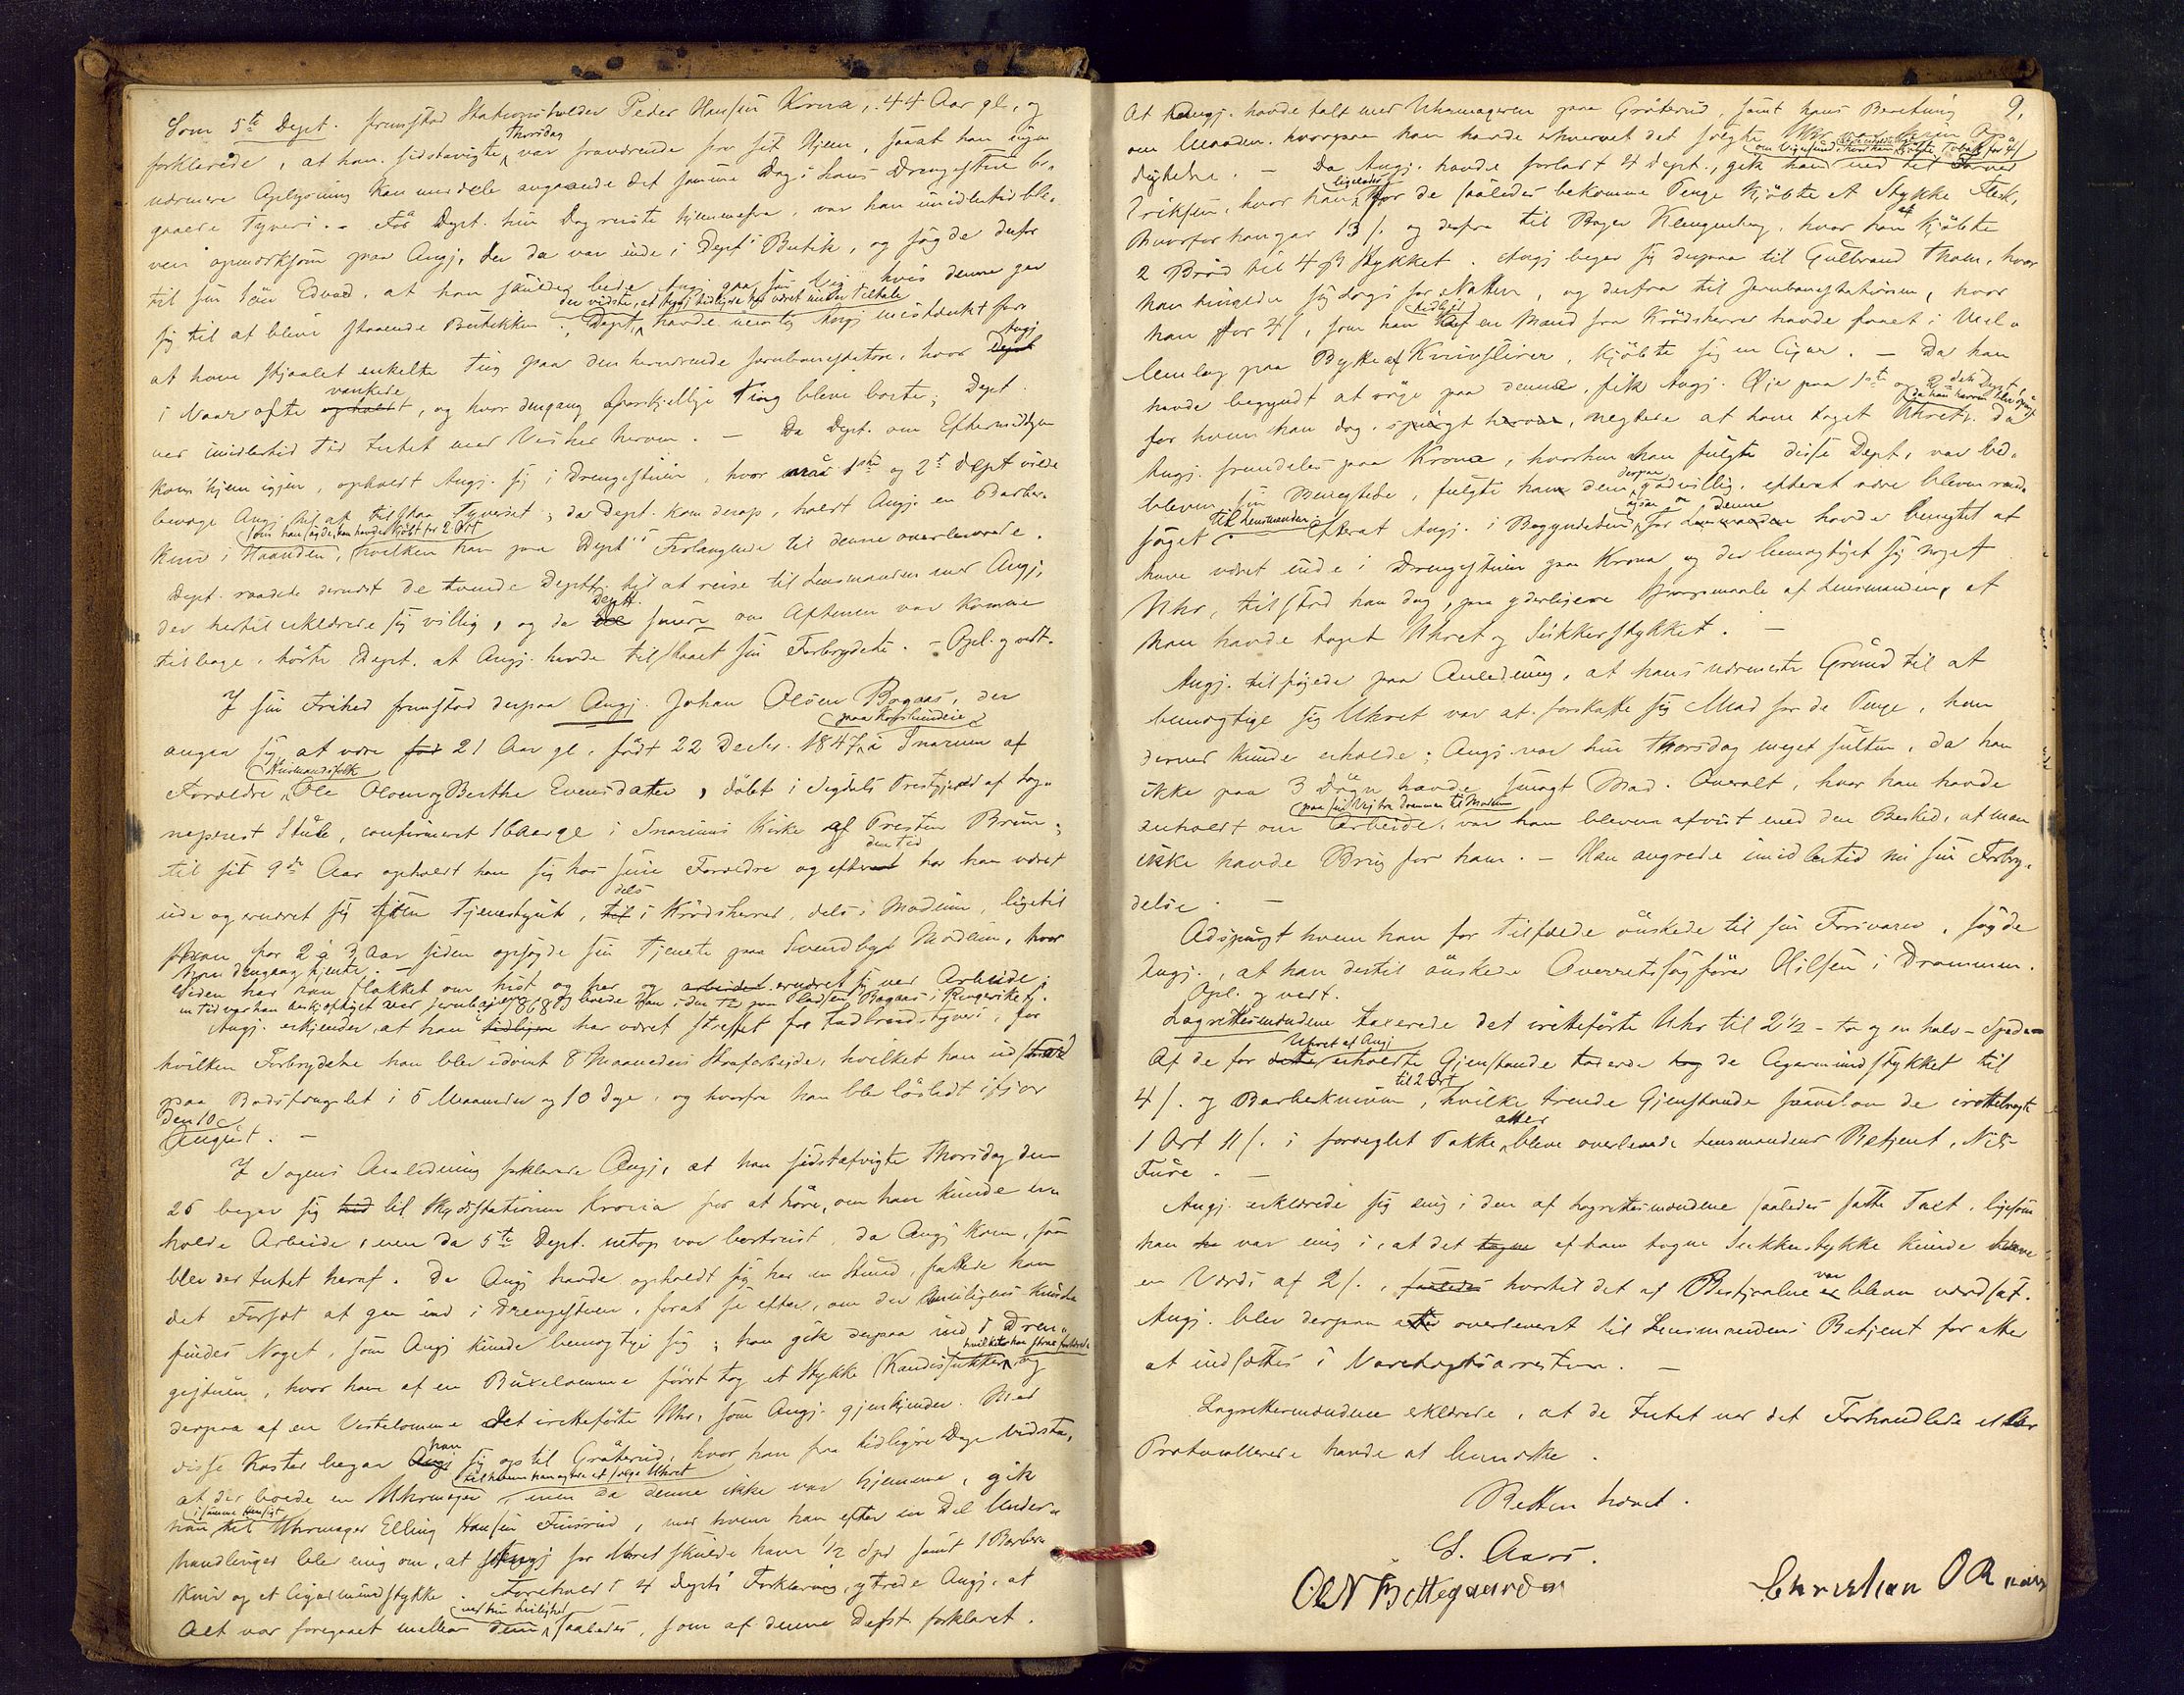 Som 5te Dept. fremstod Stationsholder Peder Hansen Krona, 44 Aar gl., og
forklarede, at han sidstavigte Thorsdag var fraværende fra sit Hjem, saaat han ingen
nærmere Oplysning kan meddele angaaende det samme Dag i hans Drengestue be-
gaaede Tyveri. - Før Dept. hin Dag reiste hjemmefra, var han imidlertid ble-
ven opmærksom paa Angj, der da var inde i Depts Butik, og sagde derfor
til sin Søn Edvard, at han skulde bede Angj gaa sin Vei hvis denne gav
sig til at blive staaende i Butikken. Dept, der vidste, at Angj tidligere har været under Tiltale, havde nemlig Angj mistænkt for
at have stjaalet enkelte Ting paa den herværende Jernbanestation, hvor Dept Angj
i Vaar ofte opholdt vankede, og hvor dengang forskjellige Ting bleve borte; Dept.
ved imidlertid Intet med Vished herom. - Da Dept. om Eftermiddagen
kom hjem igjen, opholdt Angj. sig i Drengestuen, hvor 1ste og 2det Dept vilde
bevæge Angj. til at tilstaa Tyveriet; da Dept. kom derop, holdt Angj. en Barber-
kniv i Haanden, som han sagde, han havde kjøbt for 2 Ort, hvilken han paa Depts Forlangende til denne overleverede.
Dept. raadede dernæst de tvende Deptt. til at reise til Lensmanden med Angj,
der hertil erklærede sig villig, og da de Deptt. senere om Aftenen var komne
tilbage, hørte Dept. at Angj. havde tilstaaet sin Forbrydelse. - Opl. og vedt.
I sin Frihed fremstod derpaa Angj. Johan Olsen Bagaas, der
angav sig at være fød 21 Aar gl., født 22 Decbr. 1847 paa Kopslandeie i Snarum af
Forældre Husmandsfolk Ole Olsen og Berthe Evensdatter, døbt i Sigdals Prestegjeld af Sog-
neprest Stub, confirmeret 16 Aar gl. i Snarums Kirke af Presten Brun;
til sit 9de Aar opholdt han sig hos sine Forældre og efter den Tid har han været
ude og ernæret sig som Tjenestegut, til dels i Krødsherred, dels i Modum, ligetil
han for 2 à 3 Aar siden opsagde sin Tjeneste paa Svendbye Modum, hvor
han dengang tjente. -
Siden har han flakket om hist og her og arbeidet ernæret sig ved Arbeide;
en Tid var han beskjæftiget ved Jernbanen og boede han i den Tid paa Pladsen Bagaas i Ringerike.
Angj. erkjender, at han tidligere har været straffet for Indbrudstyveri, for
hvilken Forbrydelse han blev idømt 8 Maaneders Strafarbeide, hvilket han udstod
paa Bodsfængslet i 5 Maaneder og 10 Dage, og hvorfra han blev løsladt ifjor
den 10
August. -
I Sagens Anledning forklarede Angj, at han sidstafvigte Thorsdag den
25 begav sig hid til Skydsstationen Krona for at høre, om han kunde er-
holde Arbeide, men da 5te Dept. netop var bortreist, da Angj kom, saa
blev der Intet heraf. Da Angj havde opholdt sig her en Stund, fattede han
det Forsæt at gaa ind i Drengestuen, forat se efter, om der muligens kunde
findes Noget, som Angj kunde bemægtige sig; han gik derpaa ind i Dren-
gestuen, hvor han af en Buxelomme først tog et Stykke Kandissukker, hvilket han strax fortærede, og
derpaa af en Vestelomme det iretteførte Uhr, som Angj. gjenkjender. Med
disse Koster begav Angj han sig op til Gråterud, hvor han fra tidligere Dage vidste,
at der boede en Uhrmager, til hvem han agtede at sælge Uhret, men da denne ikke var hjemme, gik
han i samme Hensigt til Uhrmager Elling Hansen Fuirud, med hvem han efter en Del Under-
handlinger blev enig om, at Angj for Uhret skulde have 1/2 Spd samt 1 Barber-
kniv og et Cigarmundstykke. Foreholdt 4 Depts Forklaring, ytrede Angj, at
Alt var foregaaet mellem dem ved hin Leilighed saaledes, som af denne Dept forklaret.
9.
At Angj. havde talt med Uhrmageren paa Gråterud, samt hans Beretning
om Maaden, hvorpaa han havde erhvervet det solgte Uhr
digtede. - Da Angj. havde forladt 4 Dept., gik han ned til
Eriksen, hvor han ligeledes for de saaledes bekomne Penge kjøbte et Stykke Flesk,
hvorfor han gav 13 s. og derfra til Bager Klengenberg, hvor han kjøbte
2 Brød til 4 ß Stykket. Angj begav sig derpaa til Gulbrand Thom, hvor
han tingede sig Logi for Natten, og derfra til Jernbanestationen, hvor
han for 4 s., som han tidligst af en Mand fra Krødsherred havde faaet i Mel-
lemlag paa Bytte af Knivslirer, kjøbte sig en Cigar. - Da han
havde begyndt at røge paa denne, fik Angj. Øie paa 1ste og 2den Dept
for hvem han dog, spurgt herom, da han herom blev spurgt, negtede at have taget Uhret. Da
Angj. fremdeles paa Krona, hvorhen han fulgte disse Dept, var bed-
bleven sin Benegtelse, fulgte han dem derpaa godvillig, efterat være bleven raad-
søget til Lensmanden. Efterat Angj. i Begyndelsen ogsaa for Lensmanden denne havde benegtet at
have været inde i Drengestuen paa Krona og der bemægtiget sig noget
Uhr, tilstod han dog, paa yderligere Spørgsmaale af Lensmanden, at
han havde taget Uhret og Sukkerstykket. -
Angj. tilføjede paa Anledning, at hans nærmeste Grund til at
bemægtige sig Uhret var at forskaffe sig Mad for de Penge, han
derved kunde erholde; Angj. var hin Thorsdag meget sulten, da han
ikke paa 3 Døgn havde smagt Mad. Overalt, hvor han havde
anholdt om Arbeide, paa sin Vej fra Drammen til Modum var han bleven afvist med den Besked, at man
ikke havde Brug for ham. - Han angrede imidlertid nu sin Forbry-
delse. -
Adspurgt hvem han for Tilfælde ønskede til sin Forsvarer, sagde
Angj., at han dertil ønskede Overretssagfører Hilsen i Drammen.
Opl. og vedt.
Lagrettesmændene taxerede det irettførte Uhr til 2 1/2 - to og en halv - Spd
Af de for dette Uhret af Angj erholdte Gjenstande de Cigarmundstykket til
4 s. og Barberkniven til 2 Ort, hvilke tvende Gjenstande saavelsom de irettelagte
1 Ort 11 s. i forseglet Pakke atter bleve overleverede Lensmandens Betjent, Nils
Fure. -
Angj. erklærede sig enig i den af Lagrettesmændene saaledes satte Taxt, ligesom
han var enig i, at det tagne af ham tagne Sukkerstykke kunde have
en Værdi af 2 s., saaledes hvortil det af Bestjaalne er var bleven værdsat.
Angj. blev derpaa overleveret til Lensmandens Betjent for atter
at indsættes i Varetægtsarresten. -
Lagrettesmændene erklærede, at de Intet ved det Forhandlede eller
Protocollerede havde at bemærke.
Retten hævet.
S. Aars.
Christian O